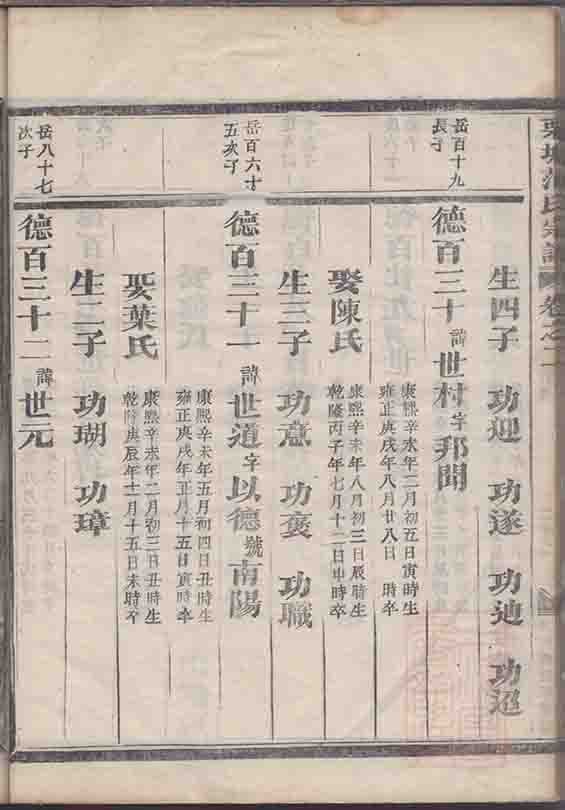 范氏宗譜 卷之二
生四子 功迎 功遂 功迪 功迢
岳百十九
長子
德百三十 諱世村字邦聞
康熙辛未年二月初五日寅時生
雍正庚戌年八月廿八日 時卒
娶陳氏
康熙辛未年八月初三日辰時生
乾隆丙子年七月十二日申時卒
生三子 功意 功褒 功職
岳百六十
五次子
德百三十一 諱世道字以德號南陽
康熙辛未年五月初四日丑時生
雍正庚戌年正月十五日寅時卒
娶葉氏
康熙辛未年二月初三日丑時生
乾隆庚辰年十一月十五日未時卒
生二子 功瑚 功璋
岳八十七
次子
德百三十二 諱世元